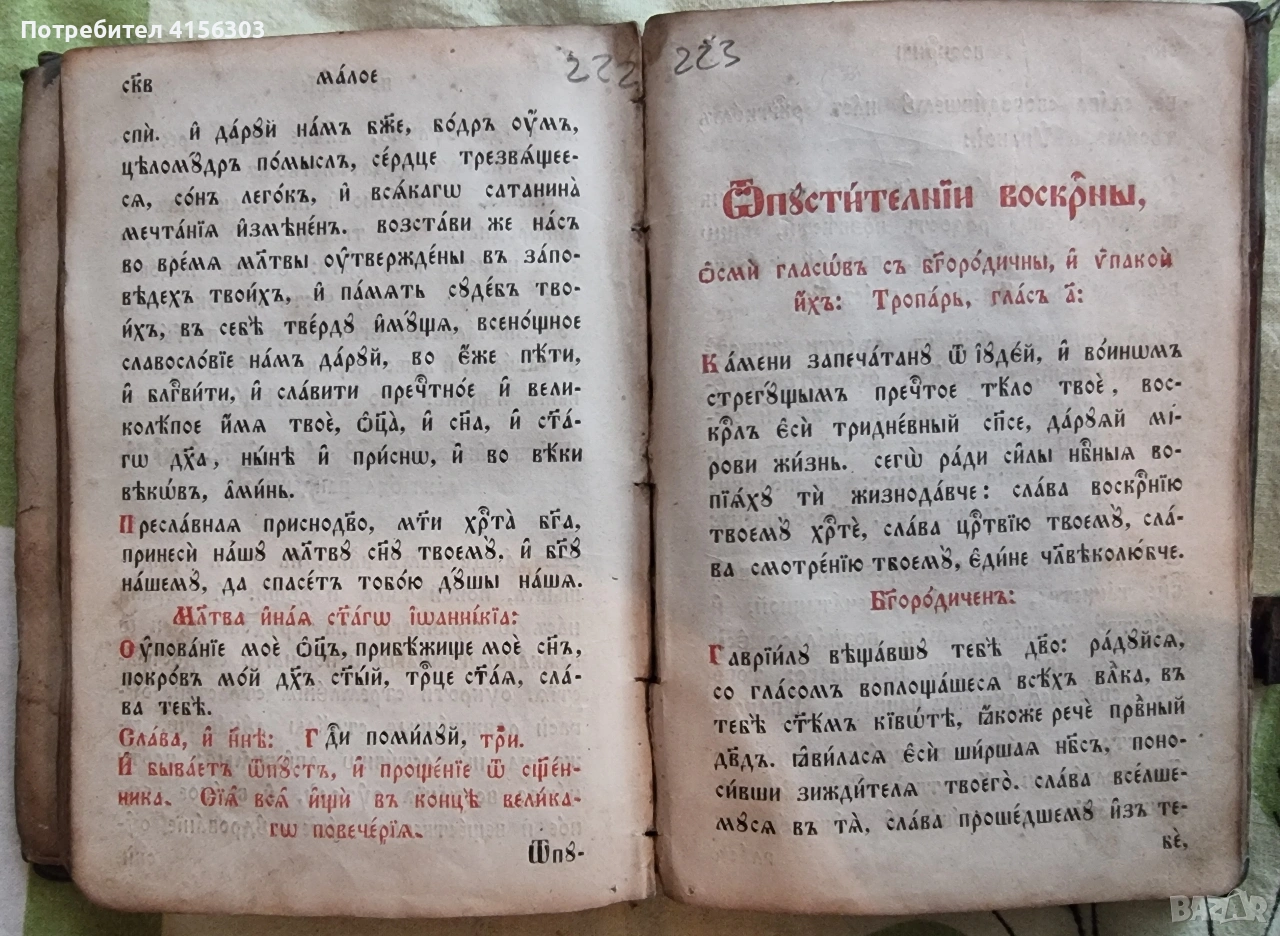 Потребител 4156303
ск҃в
ма́лое
222
223
спѝ. и҆ да́рꙋй на́мъ бж҃е, бо́дръ ᲂу҆́мъ,
цѣломꙋ́дръ по́мыслъ, се́рдце трезвѧ́щее-
сѧ, со́нъ лего́къ, и҆ всѧ́кагѡ сатанина̀
мечта́нїѧ и҆змѣне́нъ. возста́ви же на́съ
во вре́мѧ мл҃твы ᲂу҆твержде́ны въ за́по-
вѣдехъ твои́хъ, и҆ па́мѧть сꙋде́бъ тво-
и́хъ, въ себѣ̀ тве́рдꙋ и҆мꙋ́щѧ, всено́щное
славосло́вїе на́мъ да́рꙋй, во є҆́же пѣ́ти,
и҆ бл҃гви́ти, и҆ сла́вити пречⷭ҇тно́е и҆ вели-
колѣ́пое и҆́мѧ твоѐ, ѻ҆ц҃а̀, и҆ сн҃а, и҆ ст҃а́-
гѡ дх҃а, ны́нѣ и҆ при́снѡ, и҆ во вѣ́ки
вѣкѡ́въ, а҆ми́нь.
Пресла́внаѧ приснодв҃о, мт҃и хрⷭ҇та̀ бг҃а,
принесѝ на́шꙋ мл҃твꙋ сн҃ꙋ твоемꙋ̀. и҆ бг҃ꙋ
на́шемꙋ̀, да спасе́тъ тобо́ю дꙋ́шы на́шѧ.
Мл҃тва и҆на́ѧ ст҃а́гѡ і҆ѡанни́кїа:
Оу҆пова́нїе моѐ ѻ҆ц҃ъ, прибѣ́жище моѐ сн҃ъ,
покро́въ мо́й дх҃ъ ст҃ы́й, трⷪ҇це ст҃а́ѧ, сла́-
ва тебѣ̀.
Сла́ва, и҆ нн҃ѣ: Гдⷭ҇и поми́лꙋй, три.
И҆ быва́етъ ѿпꙋ́стъ, и҆ проще́нїе ѿ сщ҃е́н-
ника. Сїѧ̑ всѧ̑ и҆щѝ въ концѣ̀ вели́ка-
гѡ повече́рїѧ.
Ѿпꙋ-
Ѿпꙋсти́телнїи воскрⷭ҇ны,
ѻ҆смѝ гласѡ́въ съ бг҃оро́дичны, и҆ ѵ҆пакоѝ
и҆́хъ: Тропа́рь, гла́съ а҃:
Ка́мени запеча́танꙋ ѿ і҆ꙋде́й, и҆ во́инѡмъ
стрегꙋ́щымъ пречⷭ҇тое тѣ́ло твоѐ, вос-
крⷭ҇лъ є҆сѝ тридне́вный сп҃се, да́рꙋѧй мі́-
рови жи́знь. сегѡ̀ ра́ди си́лы нбⷭ҇ныѧ во-
пїѧ́хꙋ тѝ жизнода́вче: сла́ва воскрⷭ҇нїю
твоемꙋ̀ хрⷭ҇тѐ, сла́ва црⷭ҇твїю твоемꙋ̀, сла́-
ва смотре́нїю твоемꙋ̀, є҆ди́не чл҃вѣколю́бче.
Бг҃оро́диченъ:
Гаврїи́лꙋ вѣща́вшꙋ тебѣ̀ дв҃о: ра́дꙋйсѧ,
со гла́сомъ воплоща́шесѧ всѣ́хъ влⷣка, въ
тебѣ̀ ст҃ѣ́мъ кївѡ́тѣ, ꙗ҆́коже речѐ прв҃ный
дв҃дъ. ꙗ҆ви́ласѧ є҆сѝ ши́ршаѧ нб҃съ, поно-
си́вши зижди́телѧ твоего̀. сла́ва все́лше-
мꙋсѧ въ тѧ̀, сла́ва проше́дшемꙋ и҆зъ те-
бѐ,
BAZAR